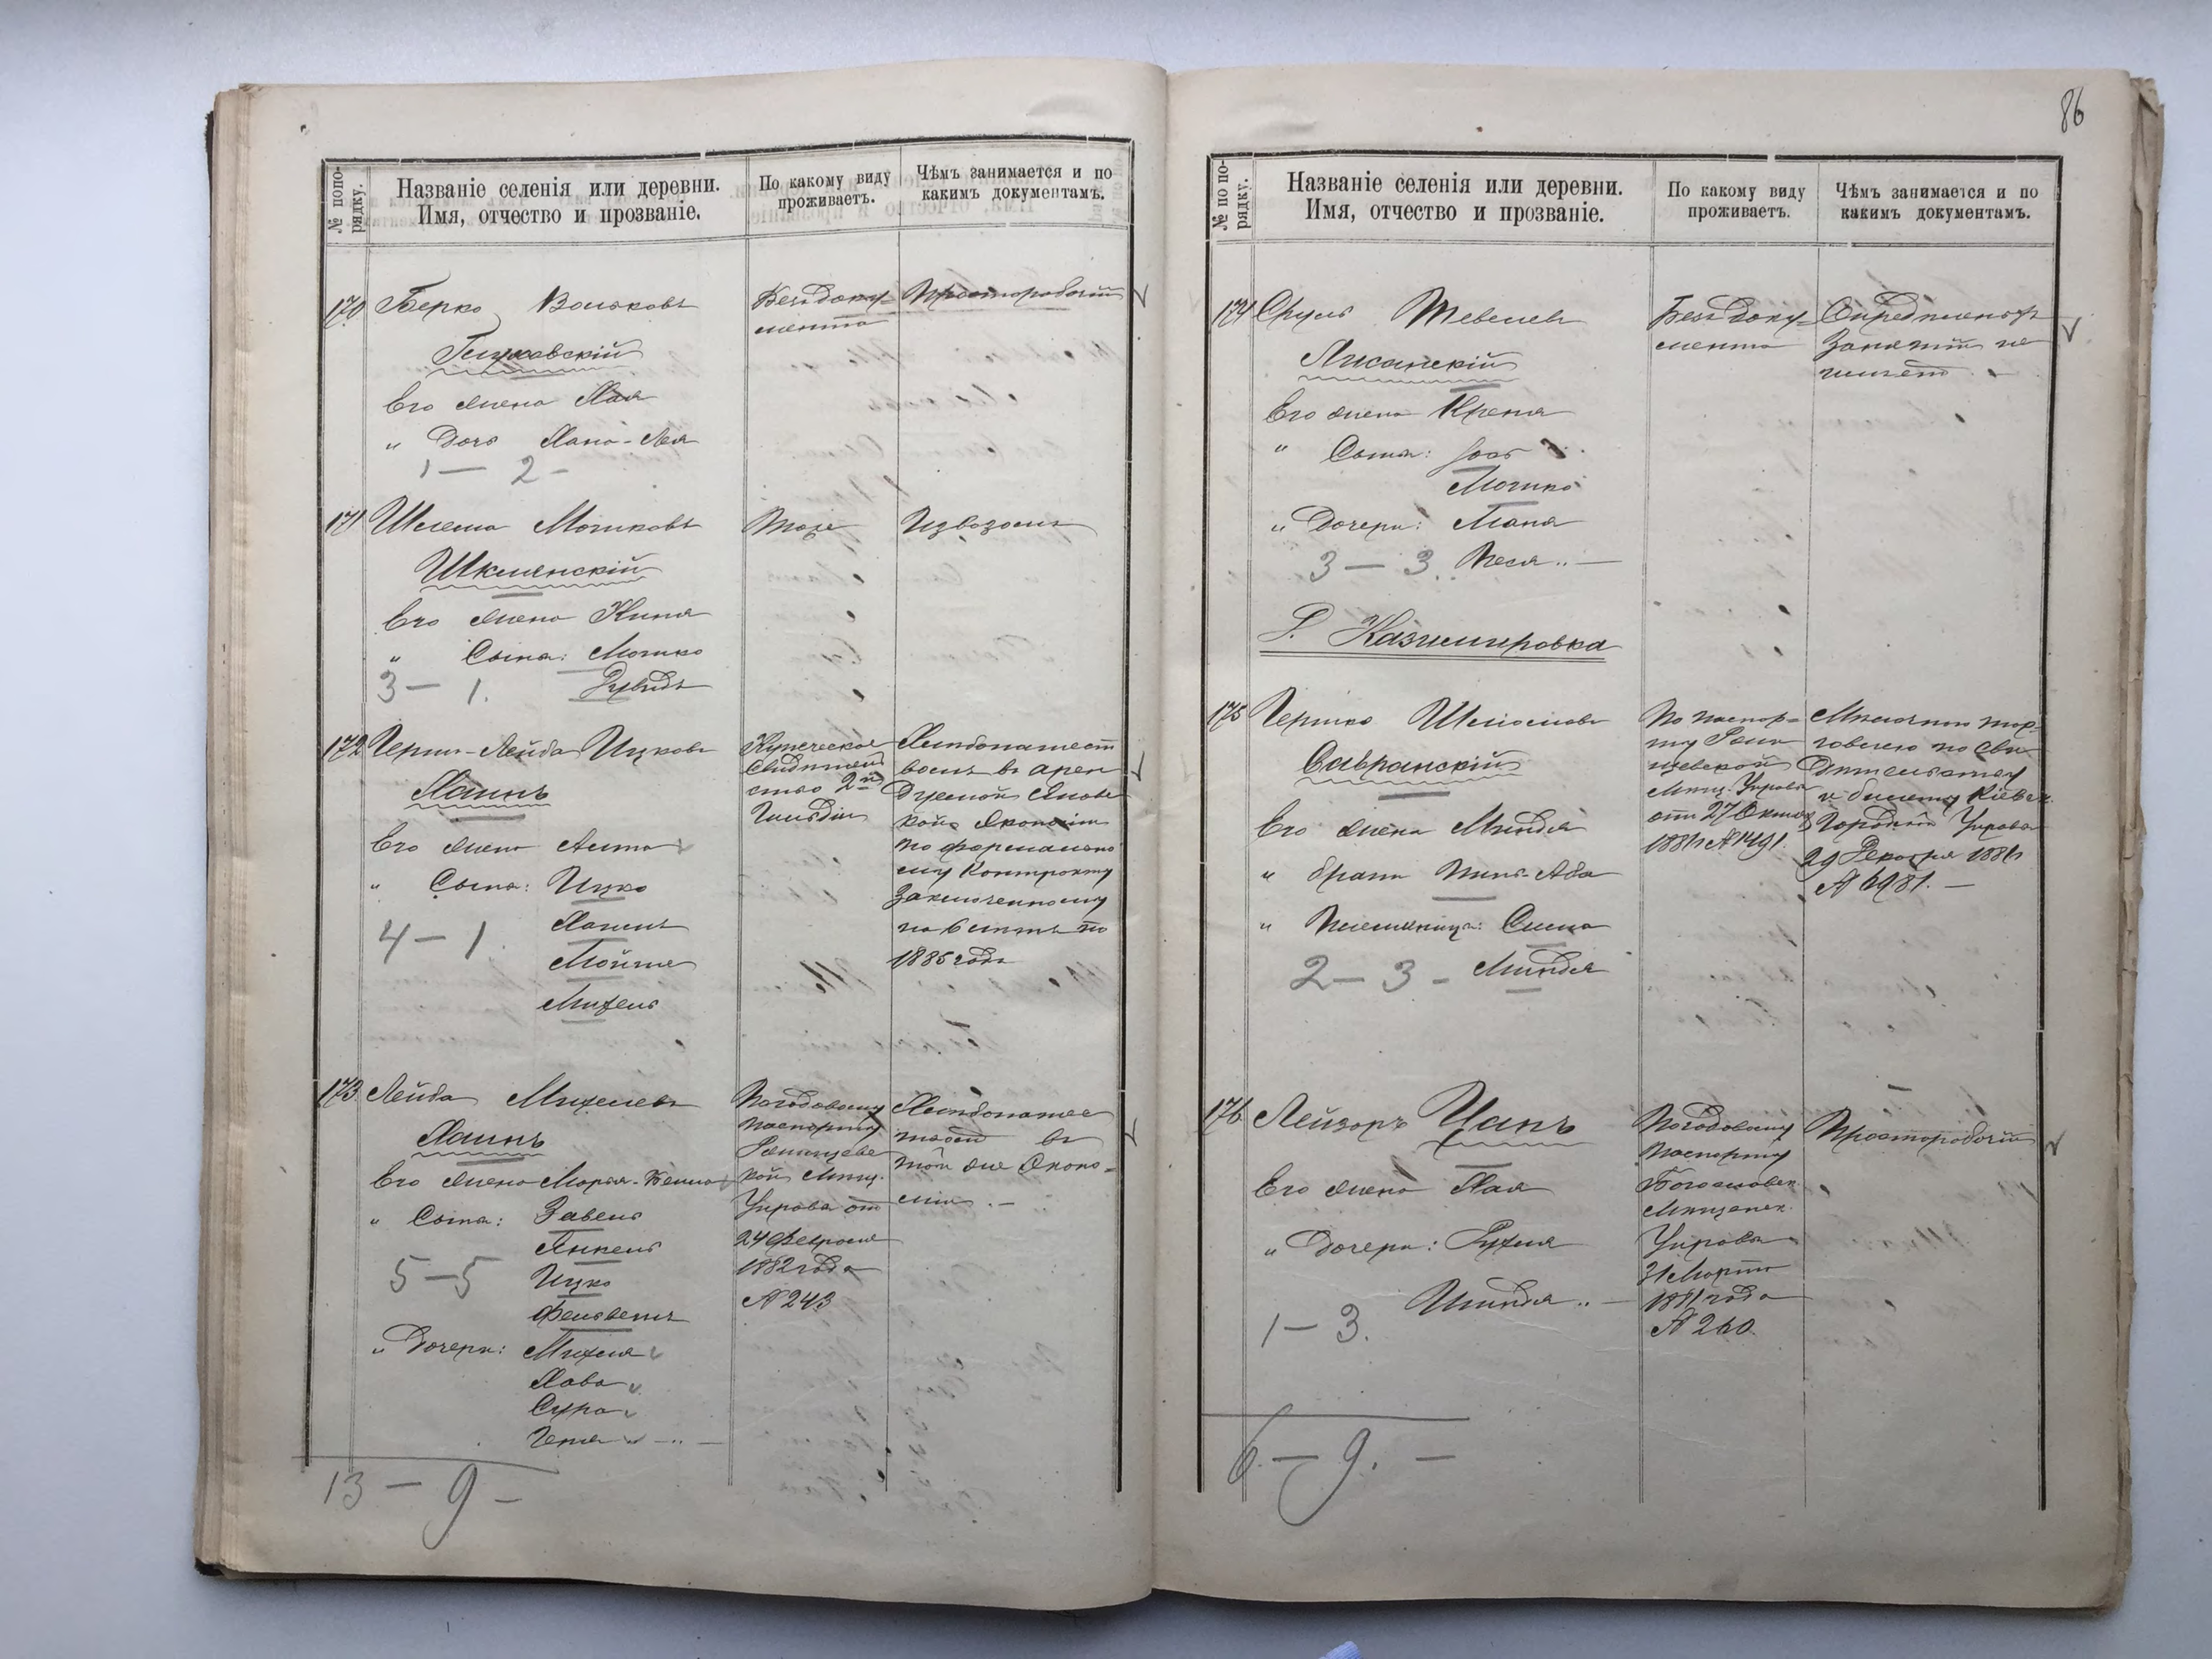 № попо-
рядку.
Названіе селенія или деревни.
Имя, отчество и прозваніе.
По какому виду
проживаетъ.
Чѣмъ занимается и по
какимъ документамъ.
170 Берко Вольковъ
Его жена Хая
" Дочь Хана-Лея
1 — 2 -
Бездоку-
мента
Просторабочій
171 Шлема Мошковъ
Шкляnскій
Его жена Кипя
" Сыны: Мошко
3 — 1. Зувидъ
Тоже
Извозомъ
172 Герш-Лейба Ицковъ
Хаинъ
Его жена
" Сыны: Ицко
Хаимъ
4 — 1. Мойше
Михель
Купеческое
Свидѣтель
ство 2й
Гильдіи
Хлѣбопашест
вомъ въ арен
дуемой
кой Экономіи
по формально
му Контракту
Заключенному
на 6 лѣтъ по
1885 годъ
173 Лейба Михелевъ
Хаинъ
Его жена Марья-Бейла
" Сыны: Завель
Янкель
5 — 5 Ицко
" Дочери: Михля
Хава
Сура
Геня
Погодовому
паспорту
кой Мѣщ.
Управы отъ
24 Февраля
1882 года
№ 243
Хлѣбопаше
ствомъ въ
той же Эконо-
міи. —
13 — 9 -
86
№ по по-
рядку.
Названіе селенія или деревни.
Имя, отчество и прозваніе.
По какому виду
проживаетъ.
Чѣмъ занимается и по
какимъ документамъ.
174 Сруль Тевелевъ
Лисанскій
Его жена Креня
" Сыны:
Мошко
" Дочери: Мана
3 — 3. Песя
Без доку-
мента
Опредѣленныхъ
Занятій не
имѣетъ. -
Казимировка
175 Гершко
Савранскій
Его жена Миндля
" братъ
" Племянница: Сима
2 — 3 - Миндля
По паспор-
ту
Мѣщ. Управы
отъ 27 Октяб
1881 № 1491.
Мѣлочною тор-
говлею по Сви
дѣтельству
и билету Кіевск.
Городской Управы
29 Декабря 1881
№ 6981. —
176 Лейзоръ Цапъ
Его жена Хая
" Дочери: Рухля
Шиндля
1 — 3.
Погодовому
Паспорту
Богославск.
Мѣщанск.
Управы
31 Марта
1881 года
№ 260.
Просторабочій
6. — 9. —